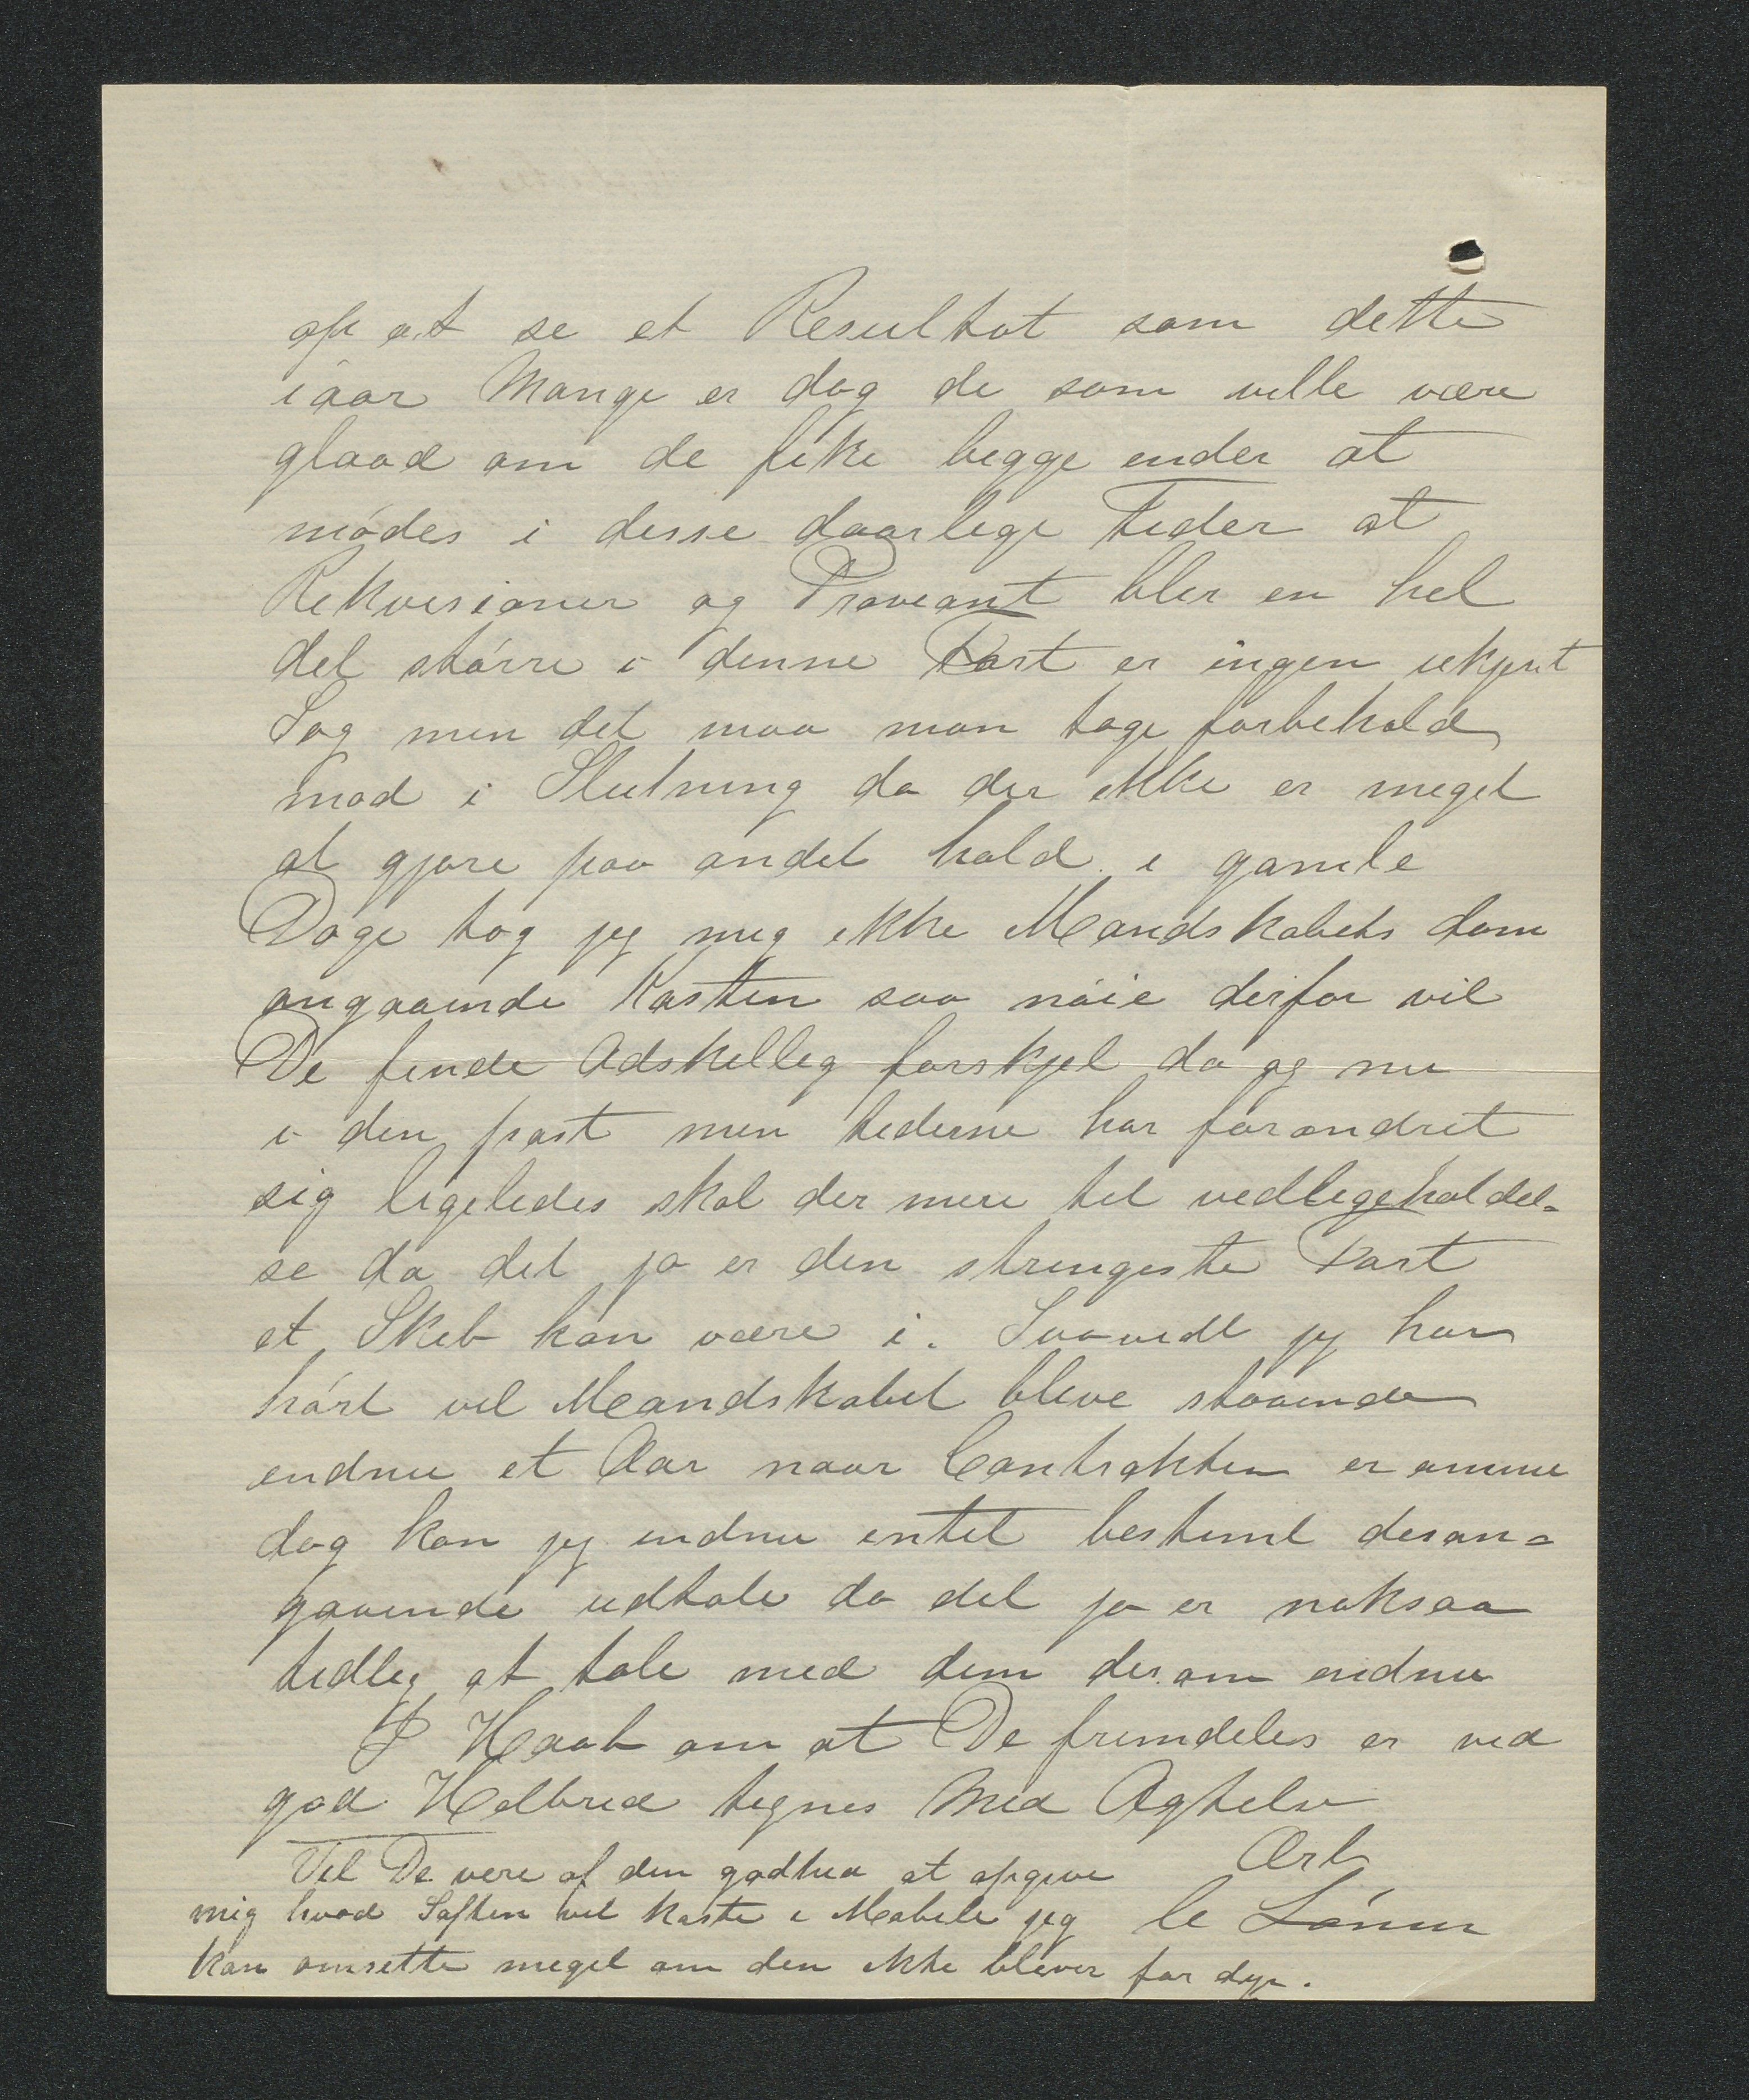 op at se et Resultat som dette
iaar Mange er dog de som ville være
glaad om de fike begge ender at
mødes i disse daarlige Tider at
Rekvisioner og Proveant bler en hel
del større i denne Fart er ingen ukjent
Sag men det maa man tage forbehold
mod i Slutning da der ikke er meget
at gjøre paa andet hold. i gamle
Dage tog jeg mig ikke Mandskabets dom
angaaende Kosten saa nøie derfor vil
De finde Adskellig forskjel da og nu
i den post men tiderne har forandret
sig ligeledes skal der mere til vedligeholdel-
se da det jo er den strengeste Fart
et Skib kan være i. Saavidt jeg har
hørt vil Mandskabet blive staaende
endnu et Aar naar Contrakten er omme
dog kan jeg endnu intet bestemt desan-
gaaende udtale da det jo er noksaa
tidlig at tale med dem derom endnu
I Haab om at De fremdeles er ved
god Helbred tegnes Med Agtelse
Ærb
Vil De være af den godhed at opgive
mig hvad Saften vil koste i Mobile jeg
kan omsette meget om den ikke bliver for dyr.